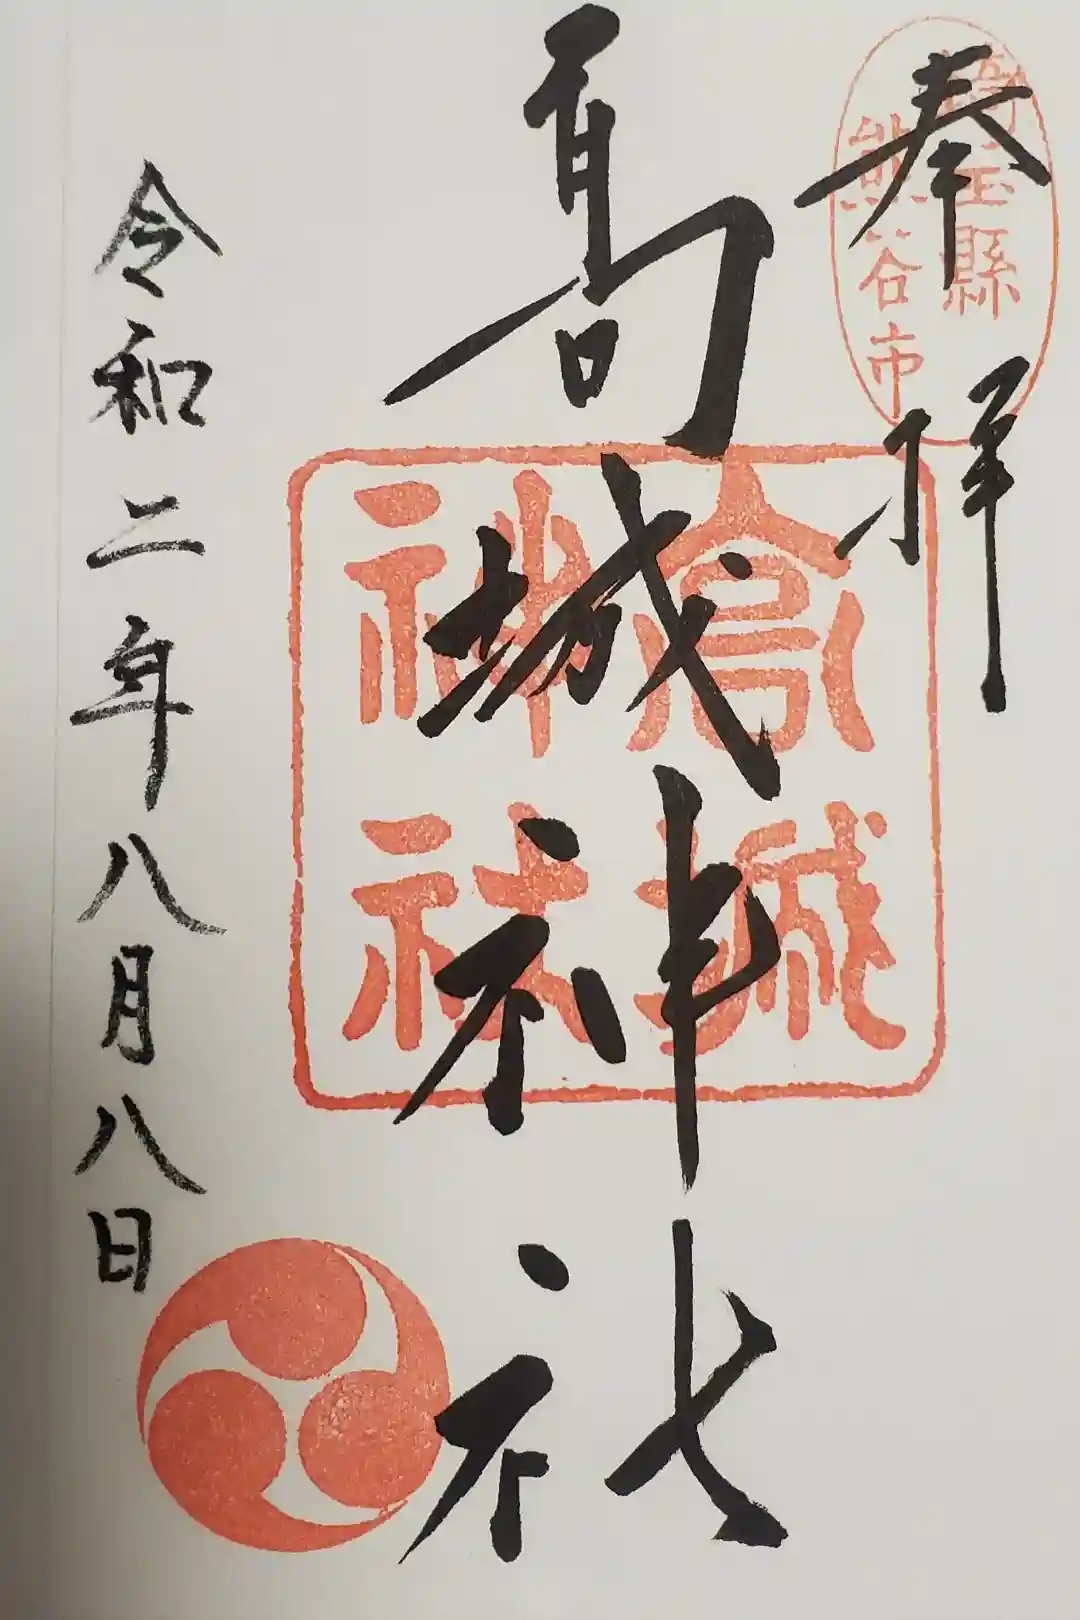 奉拝
埼玉縣
熊谷市
髙城神社
高城
神社
令和二年八月八日